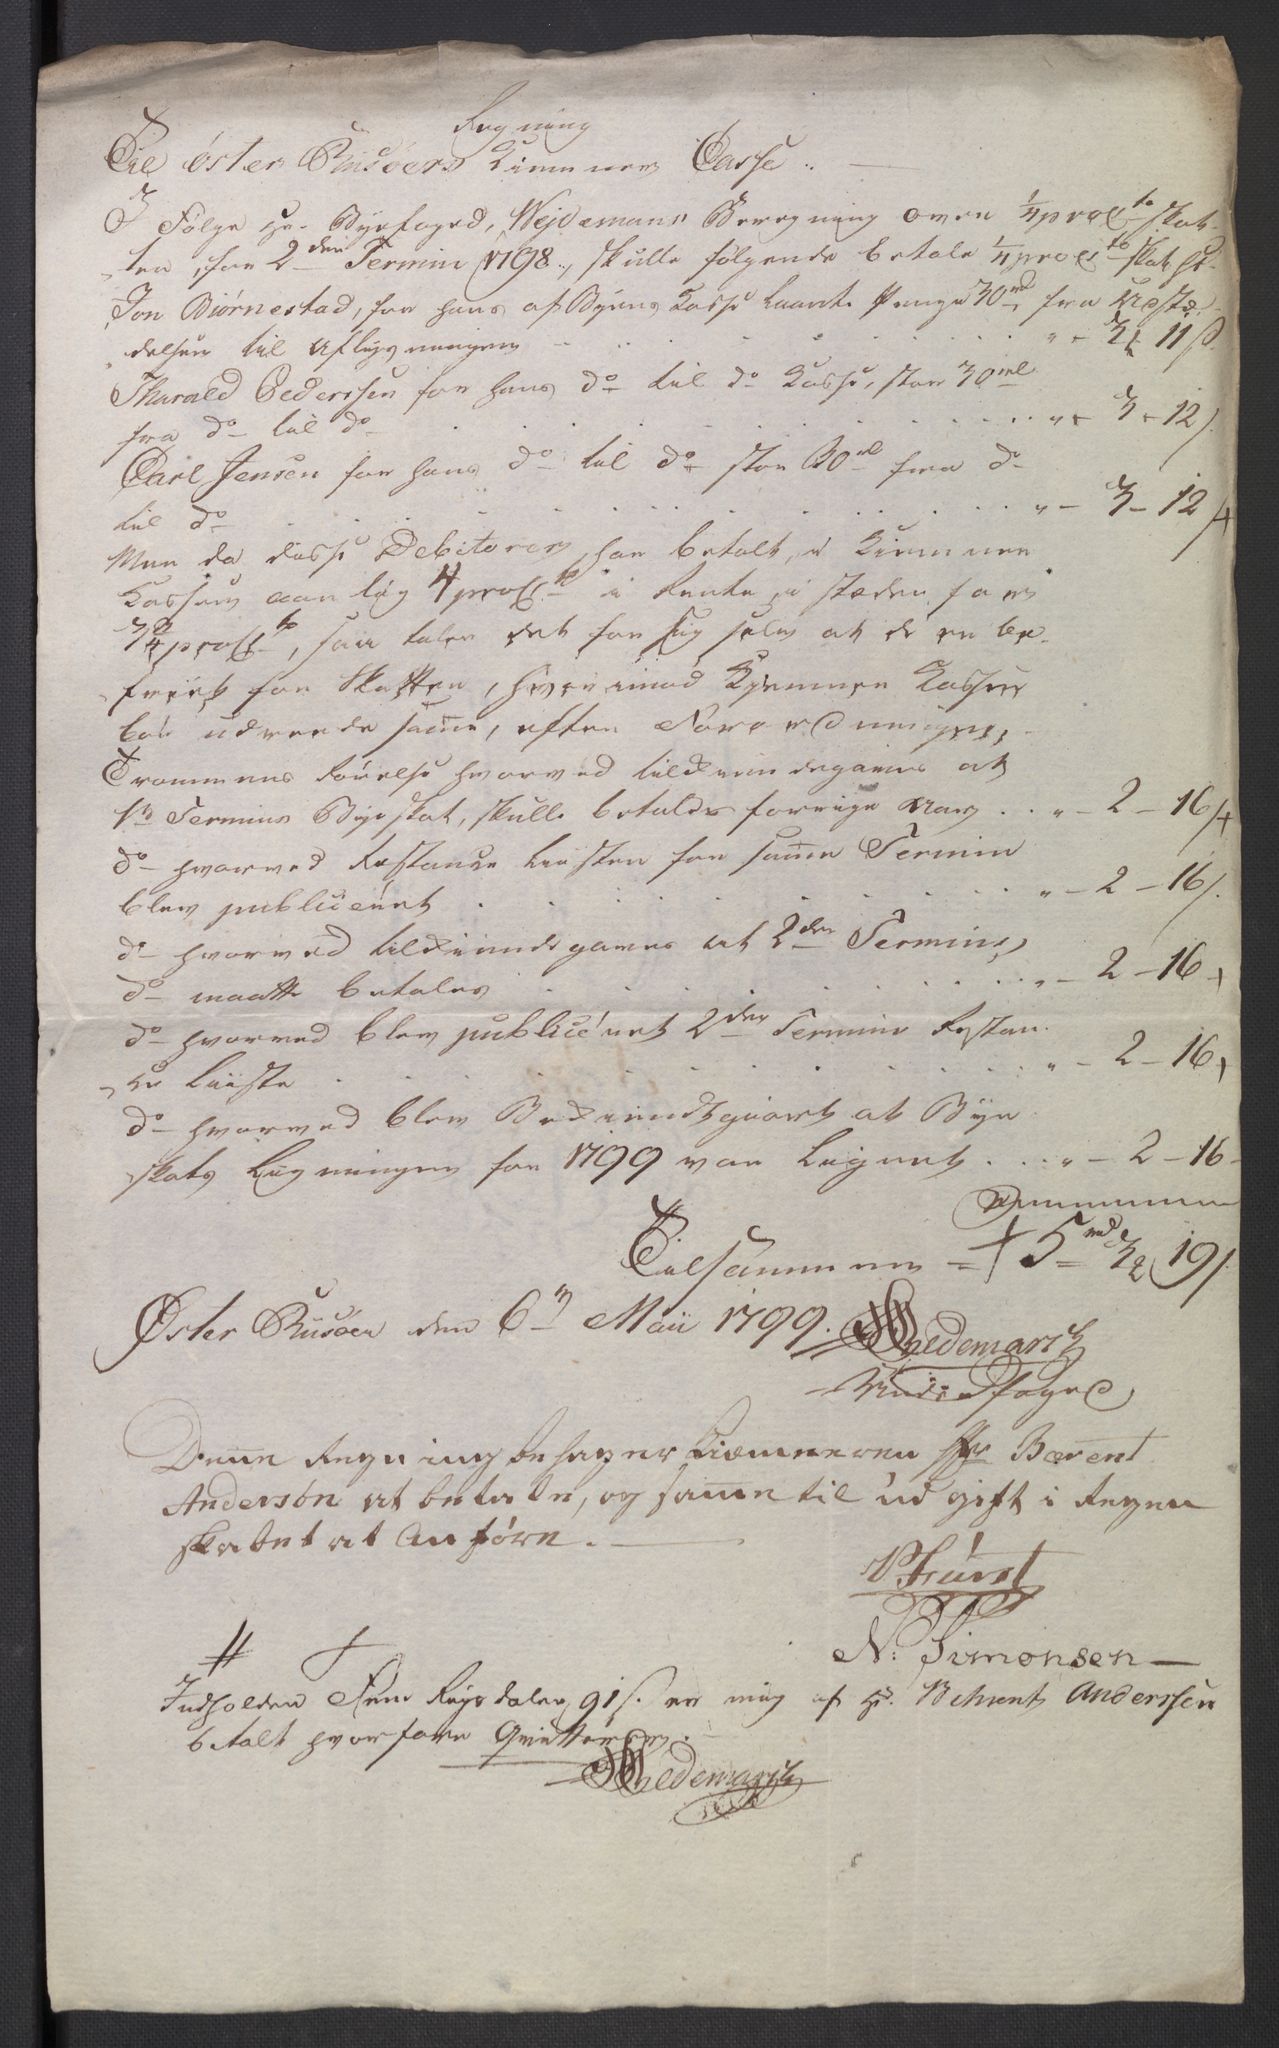 Regning
Til Øster Riisøers Kiemner Casse.
I Følge Hr. Byefoged, Wejdemans Beregning over 1/4 proCto Skat-
ten, for 2den Termin 1798., skulle følgende betale 1/4 proCto Skat Hr.
Jon Biørnestad, for hans af Byens Kasse laante Penge 30rd, fra Udstæ-
delsen til Aflysningen . . . . . " - 3 - 11 s.
Tharald Pedersen for hans do til do Kasse, stor 30rd
fra do til do . . . . . " - 3 - 12 s.
Carl Jensen for hans do til do stor 30rd fra do
til do . . . . . " - 3 - 12
Men da disse Debitorer har betalt, i Kiemner
Kassen aarlig 4 proCto i Rente, i stæden for
proCto, saa taler det for sig selv at de er be-
friet for Skatten, hvorimod Kjemner Kassen
bør udreede samme, efter Forordningen,
Trommens Rørelse hvorved tilkiendegaves at
1ste Termins Byeskat, skulle betales forrige Aar . . " - 2 - 16
do hvorved Restance Listen for samme Termin
blev publiceret . . . . . " - 2 - 16 s.
do hvorved tilkiendegaves at 2den Termins
do maatte betales . . . . . " - 2 - 16
do hvorved blev publiceret 2den Termins Restan-
ce Liste . . . . . " - 2 - 16
do hvorved blev Bekiendtgiort at Bye
skats Ligningen for 1799 var Lignet . . . " - 2 - 16
Tilsammen = 5rd 3 19 s
Øster Riisøer den 6te Maii 1799. Hedemarck
Underfoged
Denne Regning behager Kiemneren Hr Bærent
Andersøn at betale, og samme til udgift i Regen-
skabet at Anføre.
P Fürst
N: Simonsen
Indholden Fem Rigsdaler, 91 s. er mig af Hr. Behrent Anderssen
betalt hvorfore Qvitterer.
Hedemarck